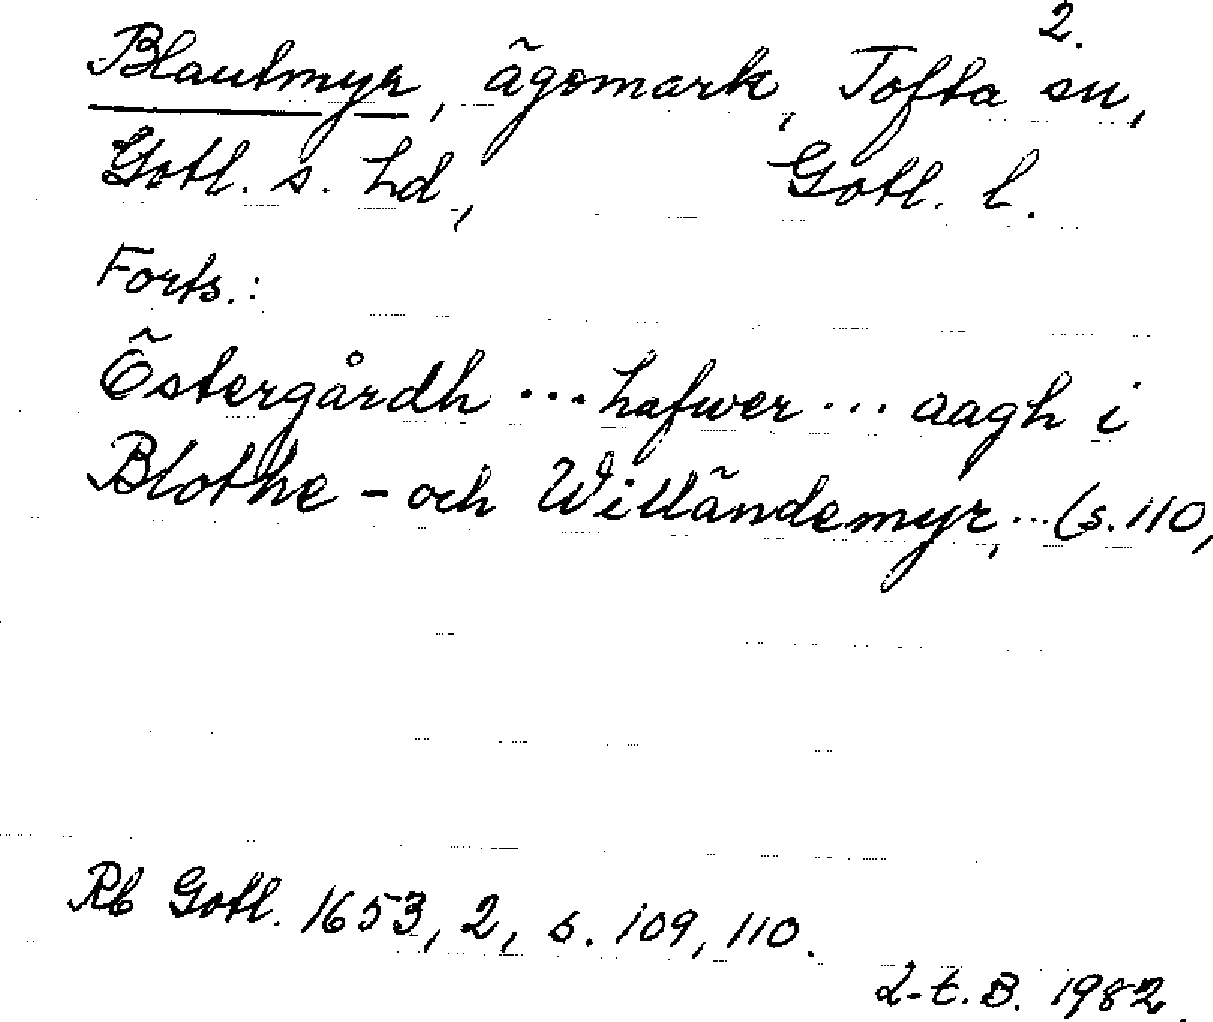 2.
Blautmyr, ägomark, Tofta sn,
Gotl. s. hd, Gotl. l.
Forts.:
Östergårdh ... hafwer ... aagh i
Blothe - och Willändemyr, ... (s. 110,
Rb Gotl. 1653, 2, s. 109, 110.
L-t. B. 1982.